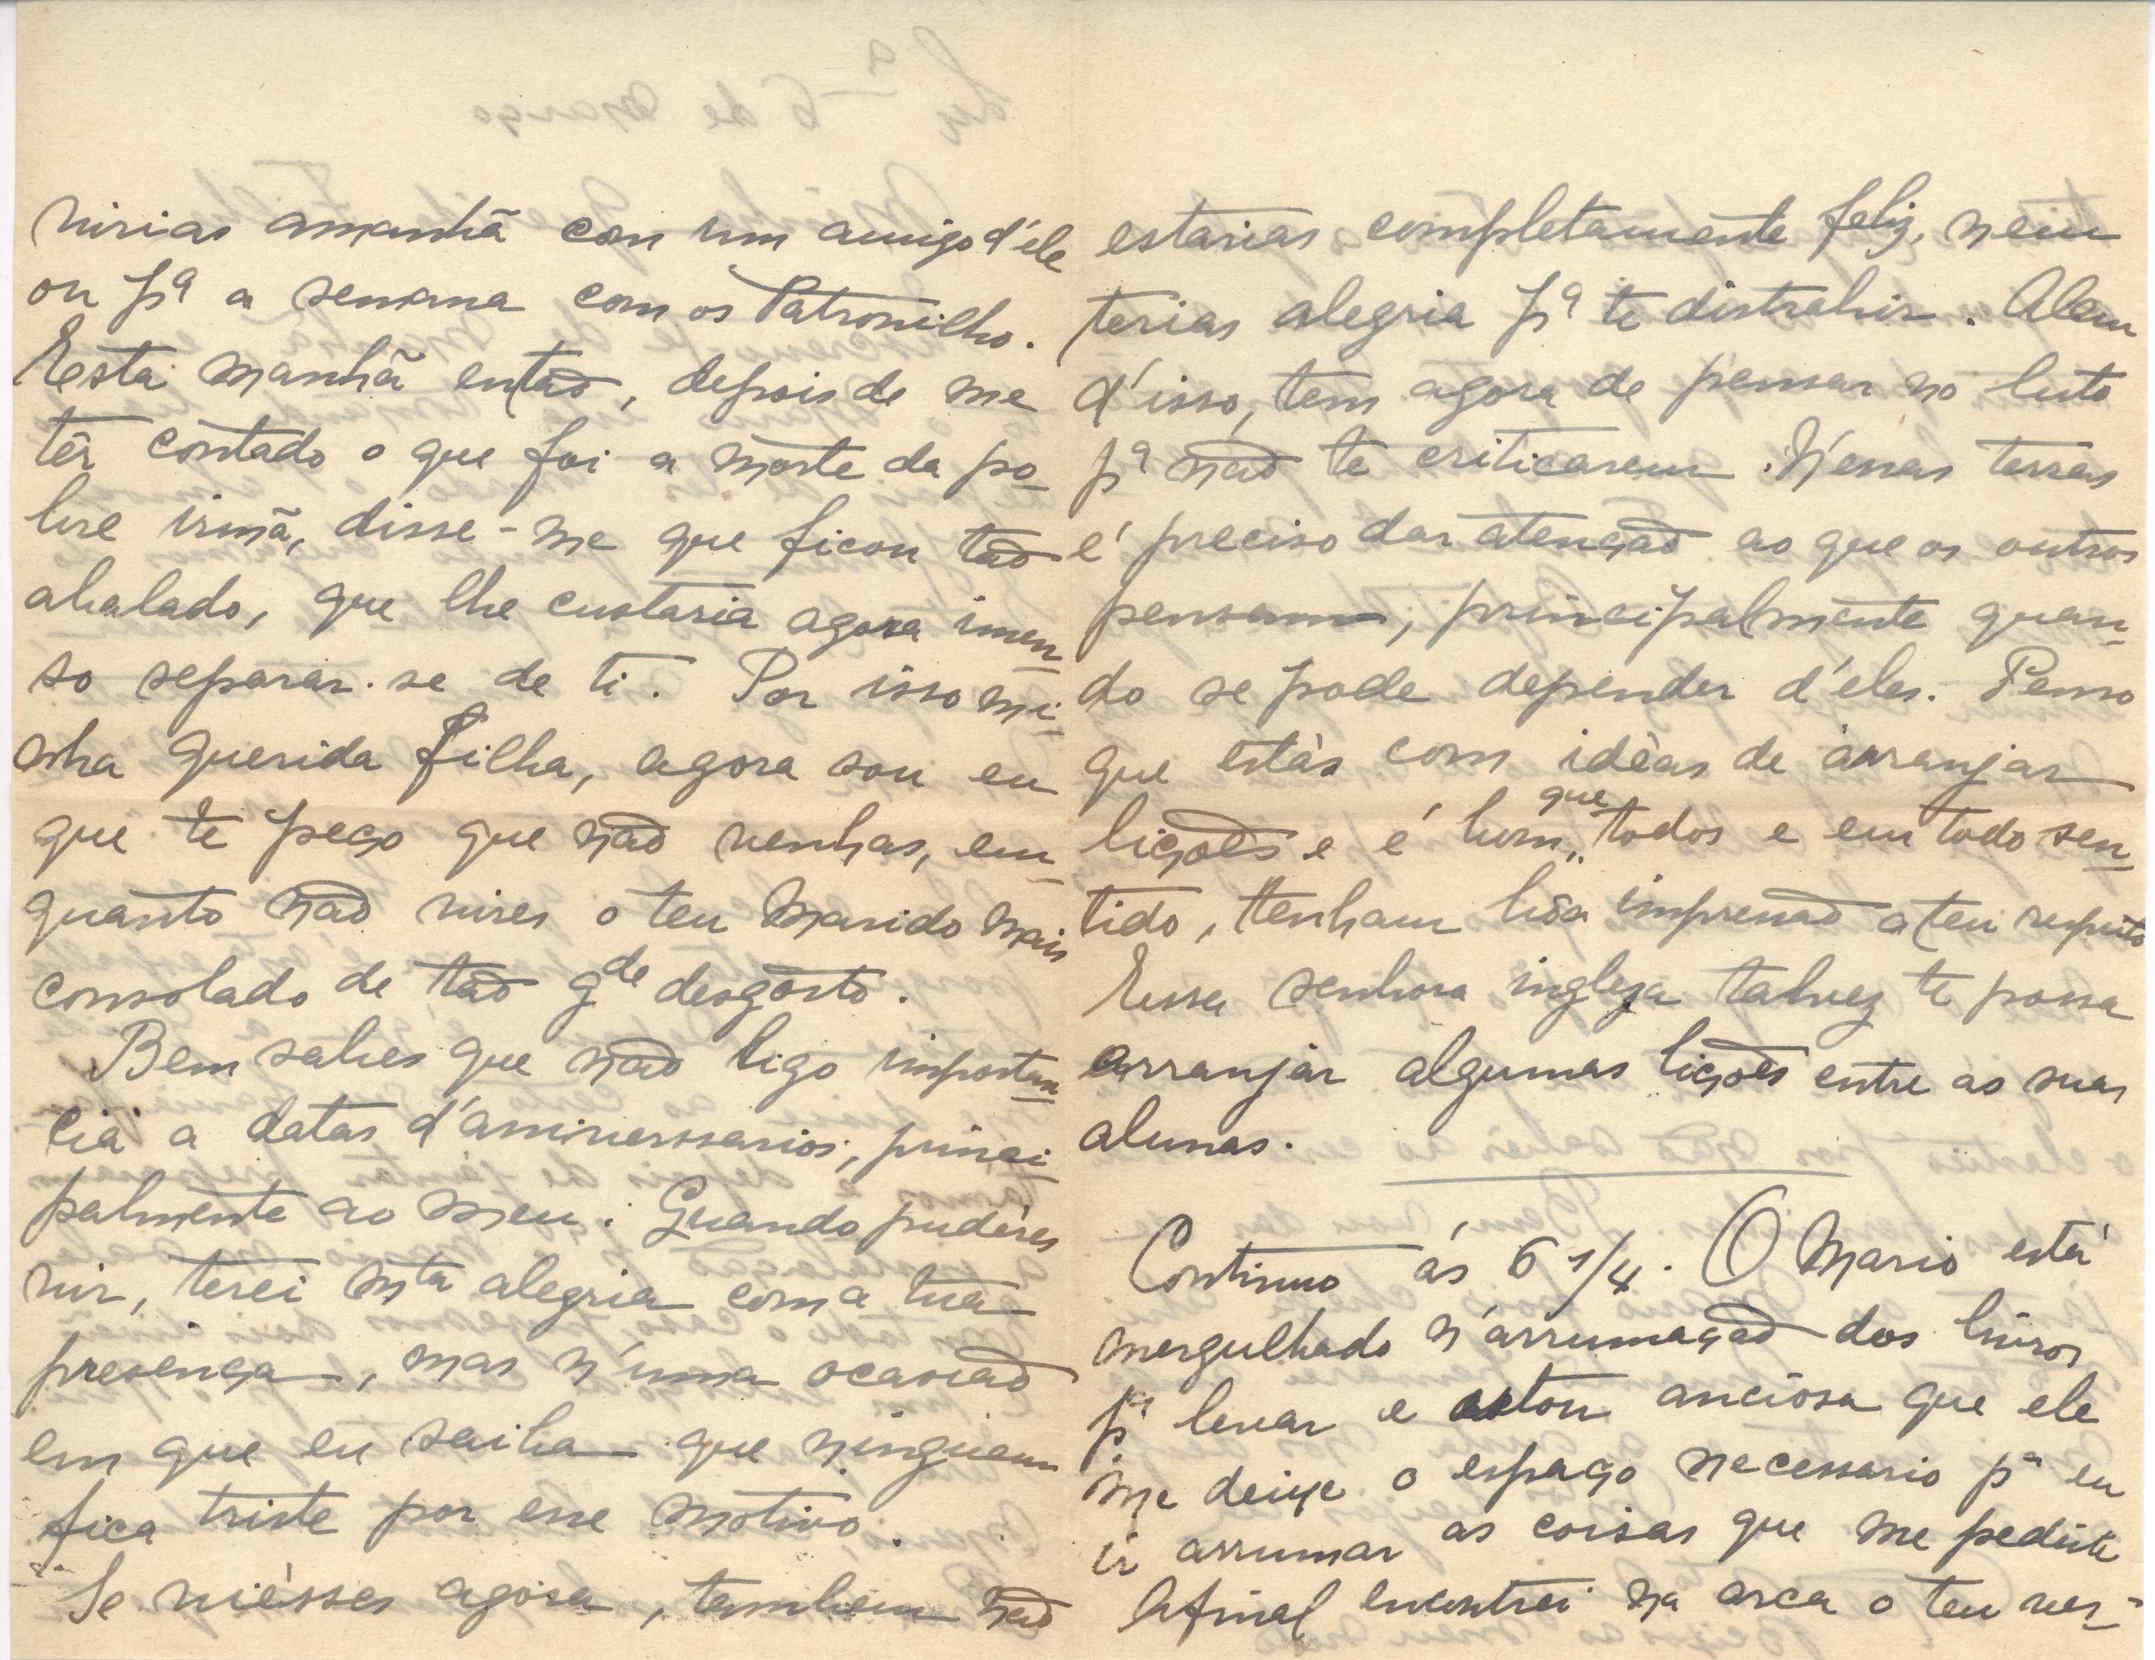 virias amanhã com um amigo d'ele
ou pª a semana com os Patronilho.
Esta manhã então, depois de me
têr contado o que foi a morte da po-
bre irmã, disse-me que ficou tão
abalado, que lhe custaria agora imen-
so separar-se de ti. Por isso mi-
nha querida filha, agora sou eu
que te peço que não venhas, em-
quanto não vires o teu Marido mais
consolado de tão gde desgôsto.
Bem sabes que não ligo importan-
cia a datas d'aniverssarios, princi-
palmente ao meu. Quando pudéres
vir, terei mta alegria com a tua
presença, mas n'uma ocasião
em que eu saiba que ninguem
fica triste por esse motivo.
Se viésses agora, tambem não
estarias completamente feliz, nem
terias alegria pª te distrahir. Alem
d'isso, tem agora de pensar no luto
pª não te criticarem. N'essas terras
é preciso dar atenção ao que os outros
pensam, principalmente quan-
do se pode depender d'eles. Penso
que estás com idèas de arranjar
lições e é bom, que todos e em todo sen-
tido, tenham bôa impressão a teu respeito
Essa senhora ingleza talvez te possa
arranjar algumas lições entre as suas
alunas.
Continuo ás 6 1/4. O Mario está
mergulhado n'arrumação dos livros
pª levar e estou anciosa que ele
me deixe o espaço necessario pª eu
ir arrumar as coisas que me pediste
Afinal encontrei na arca o teu ves-